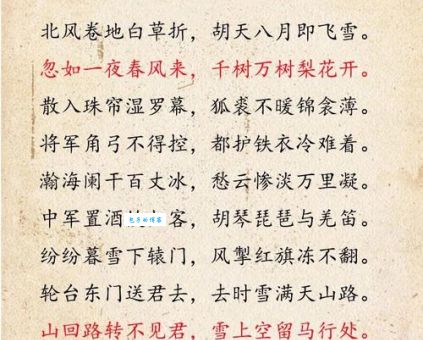 北风卷地白草折，胡天八月即飞雪。
忽如一夜春风来，千树万树梨花开。
散入珠帘湿罗幕，狐裘不暖锦衾薄。
将军角弓不得控，都护铁衣冷难着。
瀚海阑干百丈冰，愁云惨淡万里凝。
中军置酒客，胡琴琵琶与羌笛。
纷纷暮雪下辕门，风掣红旗冻不翻。
轮台东门送君去，去时雪满天山路。
山回路转不见君，雪上空留马行处。